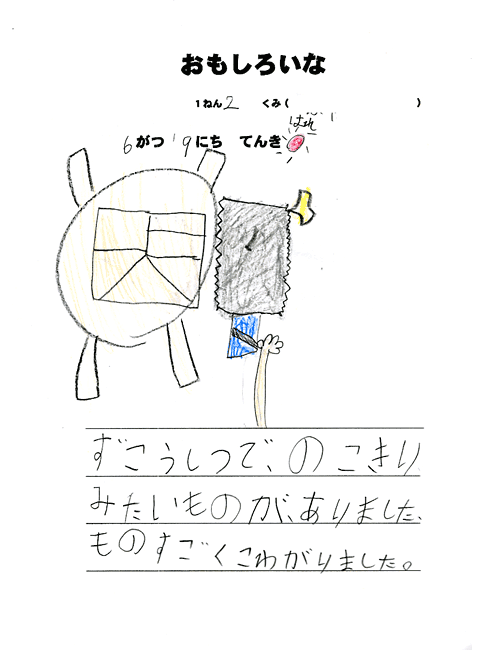 おもしろいな
1ねん2 くみ( )
はれ
6がつ 19にち てんき
ずこうしつで、のこきり
みたいものが、ありました、
ものすごくこわがりました。